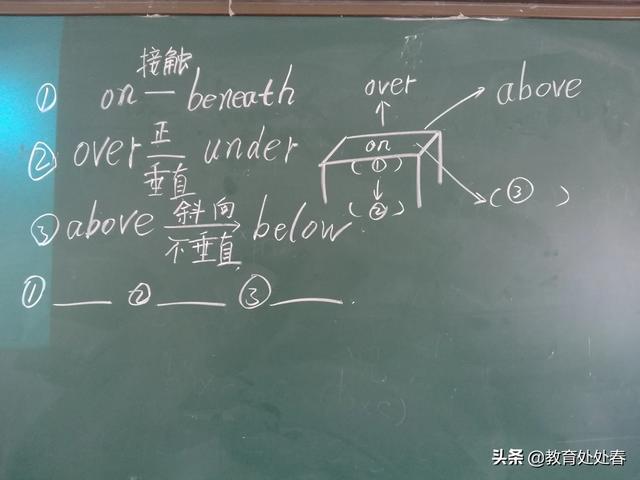 接触
① on — beneath
② over 正 垂直 under
③ above 斜向 不垂直 below
① ____ ② ____ ③ ____.
over
above
on
(①)
(②)
(③)
头条 @教育处处春